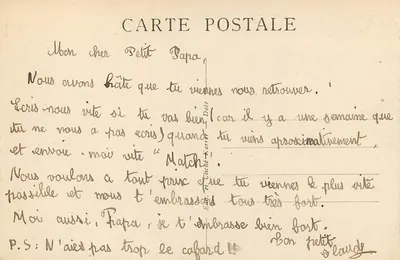 CARTE POSTALE
Mon cher Petit Papa,
Nous avons hâte que tu viennes nous retrouver.
Ecris-nous vite si tu vas bien (car il y a une semaine que
tu ne nous a pas écris) quand tu viens aproximativement,
et envoie-moi vite "Match".
Nous voulons a tout prix que tu viennes le plus vite
possible et nous t'embrassons tous très fort.
Moi aussi, Papa, je t'embrasse bien fort.
Ton petit
Claude
P.S: N'aies pas trop le cafard!!